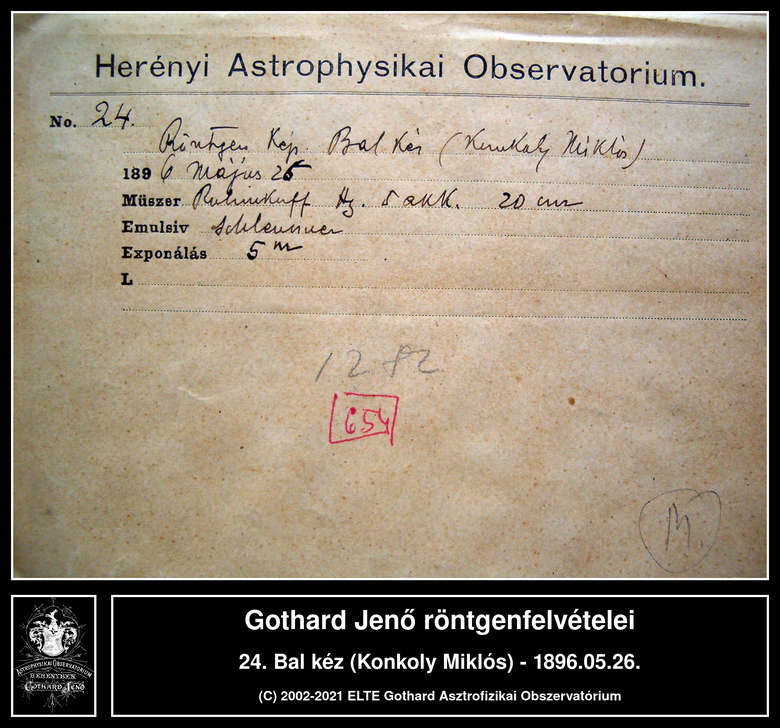 Herényi Astrophysikai Observatorium.
No. 24.
Röntgen Kép. Bal Kéz (Konkoly Miklós)
1896 Május 26
Müszer Ruhmkorff Hz. 5 akk. 20 cm
Emulsiv Schleussner
Exponálás 5 m
L
1282
654
M.
ASTROPHYSIKAI OBSERVATORIUM
HERÉNYBEN
GOTHARD JENŐ
Gothard Jenő röntgenfelvételei
24. Bal kéz (Konkoly Miklós) - 1896.05.26.
(C) 2002-2021 ELTE Gothard Asztrofizikai Obszervatórium